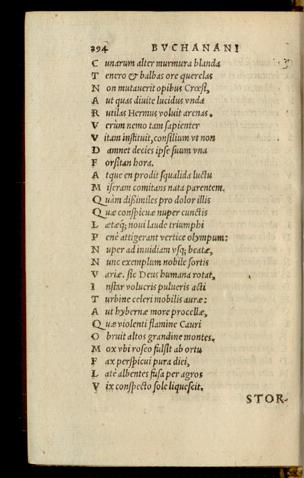 394 BVCHANANI
C unarum alter murmura blanda
T enero & balbas ore querelas
N on mutauerit opibus Crœsi,
A ut quas diuite lucidus vnda
R utilas Hermus voluit arenas.
V erùm nemo tam sapienter
V itam instituit, consilium vt non
D amnet decies ipse suum vna
F orsitan hora.
A tque en prodit squalida luctu
M iseram comitans nata parentem.
Q uàm dißimiles pro dolor illis
Q uæ conspicuæ nuper cunctis
L ætæq; noui laude triumphi
P enè attigerant vertice olympum:
N uper ad inuidiam vsq; beatæ,
N unc exemplum nobile sortis
V ariæ. sic Deus humana rotat,
I nstar volucris pulueris acti
T urbine celeri mobilis auræ:
A ut hybernæ more procellæ,
Q uæ violenti flamine Cauri
O bruit altos grandine montes.
M ox vbi roseo fulsit ab ortu
F ax perspicui pura diei,
L atè albentes fusa per agros
V ix conspecto sole liquescit.
STOR-